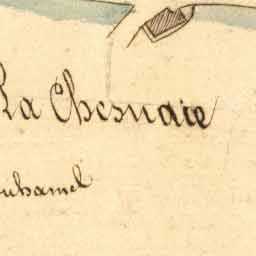 La Chesnaie
uhamel